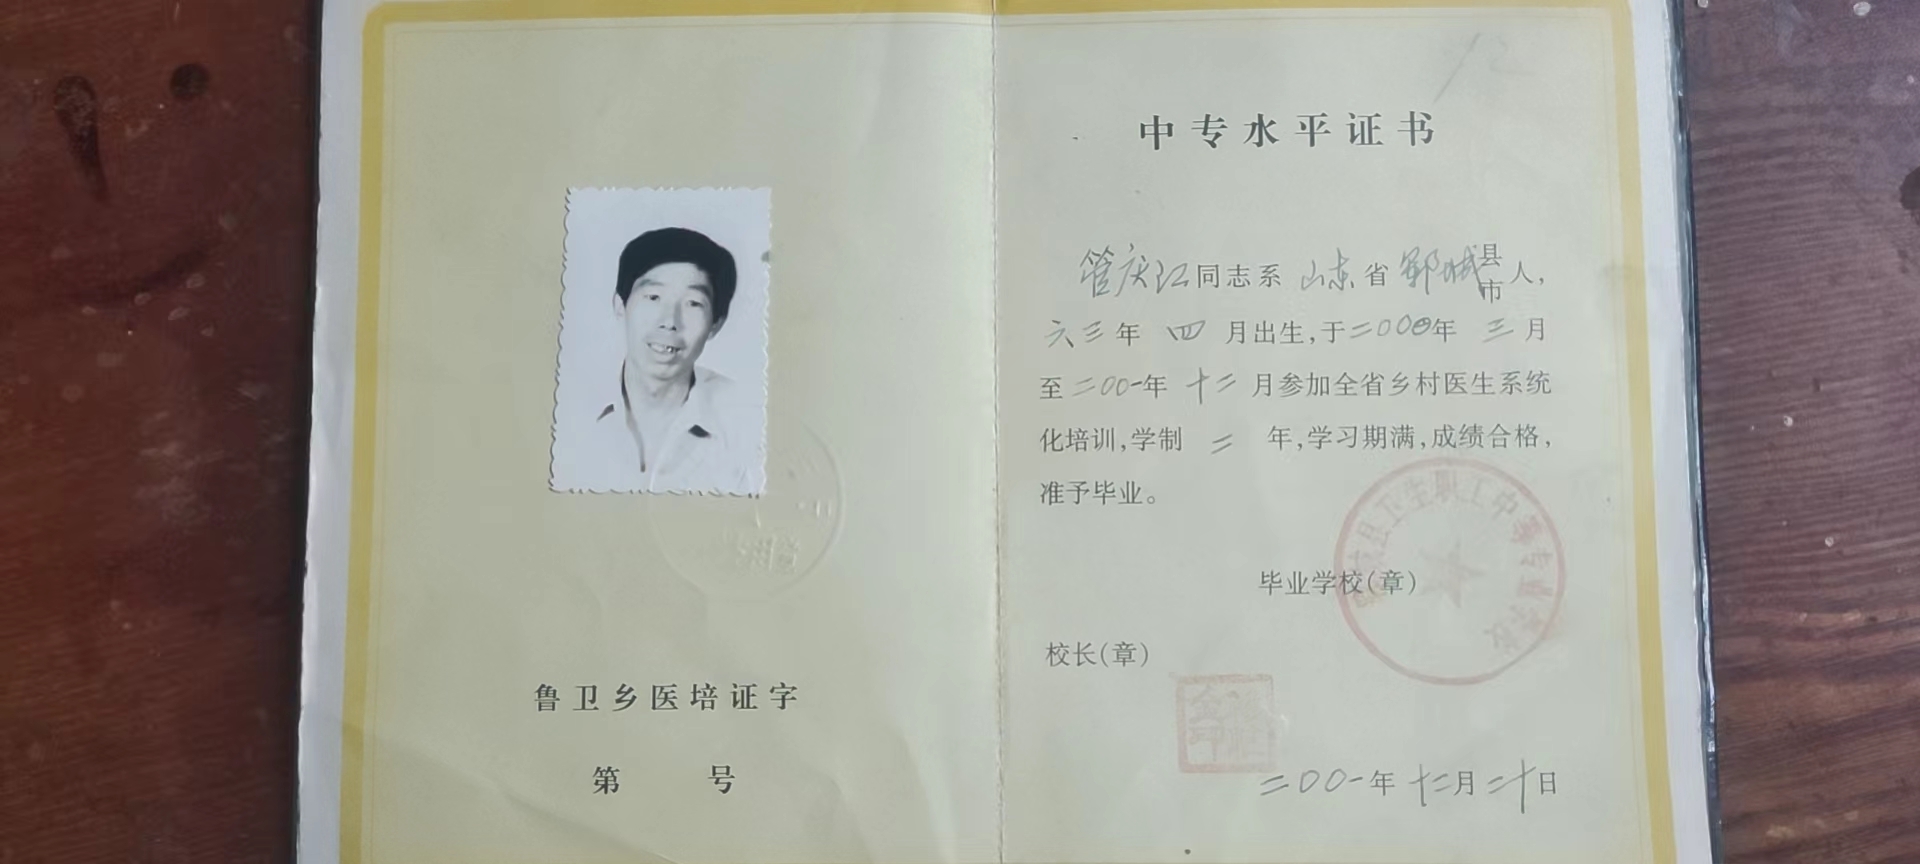 鲁卫乡医培证字
第 号
中专水平证书
管庆江同志系山东省郓城县市人，
六三年四月出生，于二000年三月
至二00一年十二月参加全省乡村医生系统
化培训，学制二年，学习期满，成绩合格，
准予毕业。
毕业学校（章）
城县卫生职工中等专业学校
校长（章）
二00一年十二月二十日